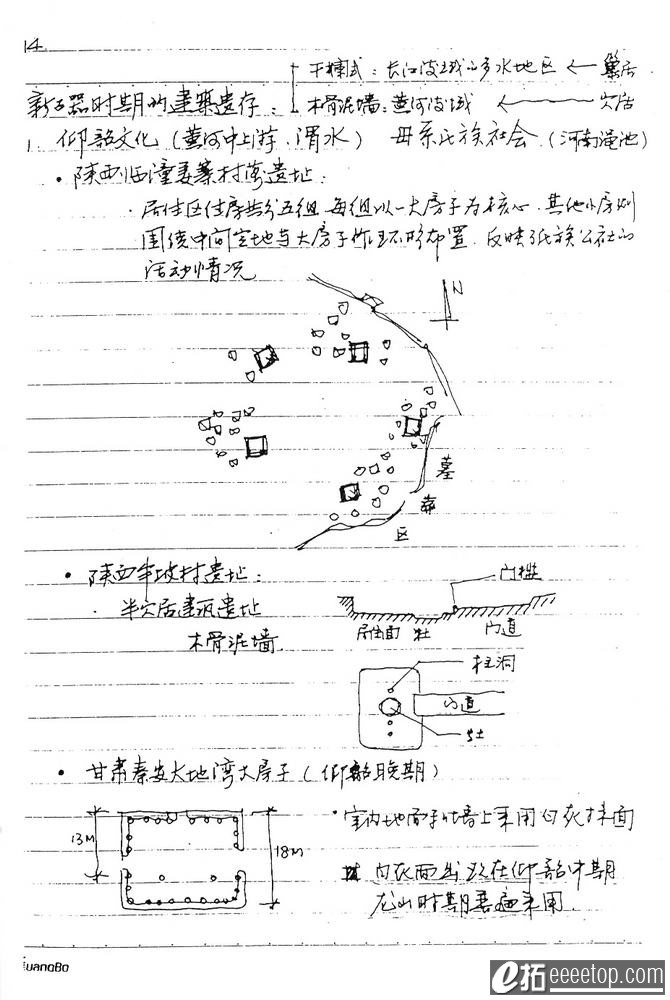 14
干栏式：长江流域的多水地区 ← 巢居
新石器时期的建築遗存：
木骨泥墙：黄河流域 ← 穴居
1. 仰韶文化（黄河中上游、渭水） 母系氏族社会.（河南渑池）
· 陕西临潼姜寨村落遗址：
· 居住区住房共分五组，每组以一大房子为核心，其他小房则
围绕中间空地与大房子作环形布置，反映氏族公社的
活动情况
N
墓
葬
区
· 陕西半坡村遗址：
门槛
· 半穴居建筑遗址
木骨泥墙
居住面 灶 门道
柱洞
门道
灶
· 甘肃秦安大地湾大房子（仰韶晚期）
13M
18M
· 室内地面于墙上采用白灰抹面
白灰面出现在仰韶中期
龙山时期普遍采用.
GuangBo
e拓 eeeetop.com